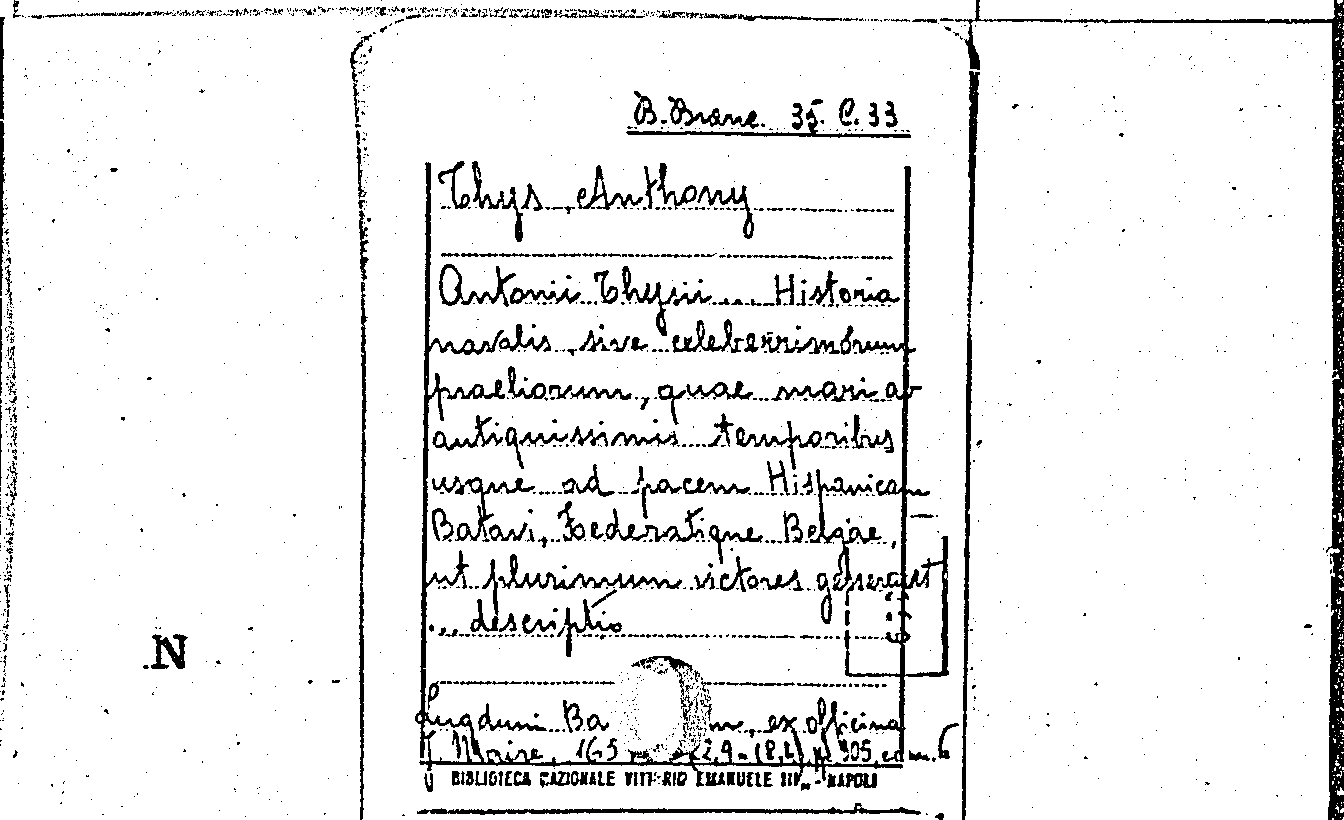 B. Branc. 35. C. 33
Thys Anthony
Antonii Thysii ... Historia
navalis, sive celeberrimorum
praeliorum, quae mari ab
antiquissimis temporibus
usque ad pacem Hispanicam
Batavi, Foederatique Belgae,
ut plurimum victores gesserunt
... descriptio
Lugduni Ba m, ex officina
J. Maire, 165
BIBLIOTECA NAZIONALE VITTORIO EMANUELE III - NAPOLI
N